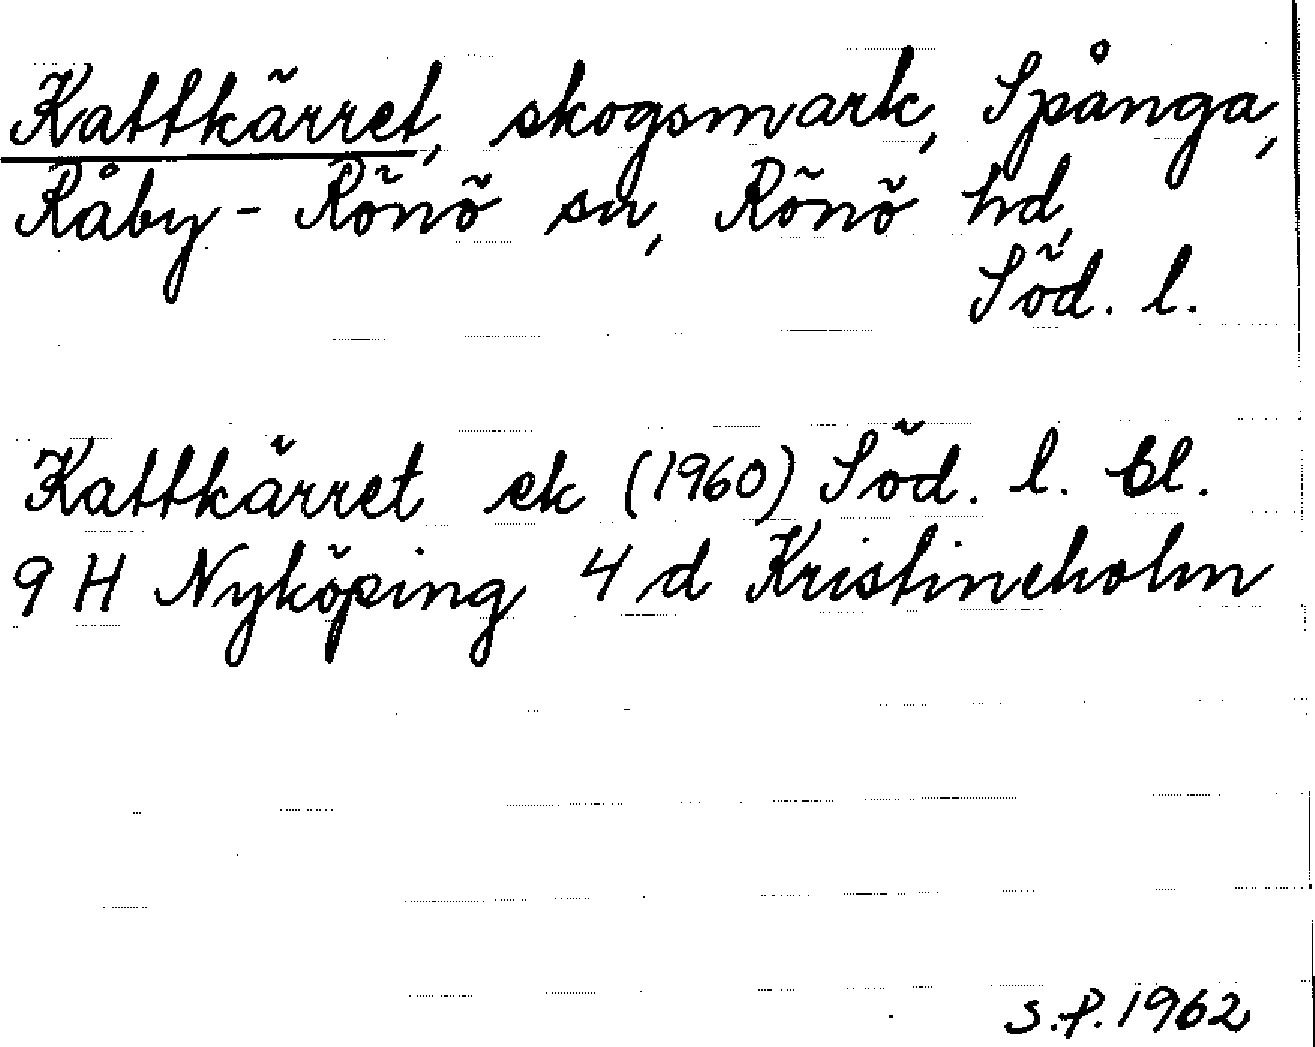 Kattkärret, skogsmark, Spånga,
Råby-Rönö sn, Rönö hd,
Söd. l.
Kattkärret ek (1960) Söd. l. bl.
9 H Nyköping 4 d Kristineholm
S.P. 1962